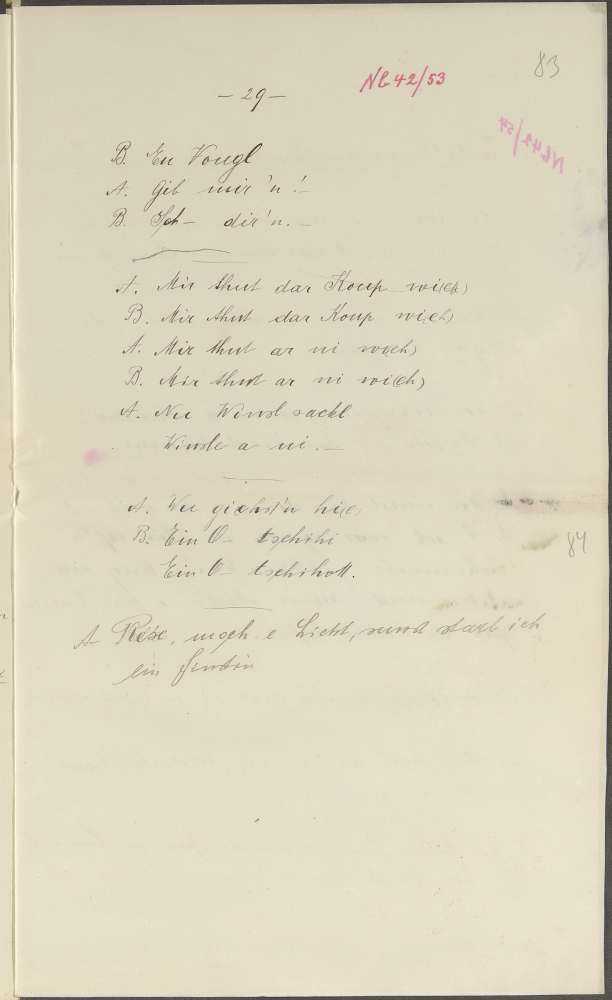 83
Nb 42/53
- 29 -
B. En Vougl
A. Gib mir'n! -
B. Ich - dir'n. -
A. Mir thut dar Koup wi(eh)
B. Mir thut dar Koup wi(eh)
A. Mir thut ar ni wi(eh)
B. Mir thut ar ni wi(eh)
A. Nu Winslsackl
Winsle a ni. -
A. Wu giehst'n hi(e)
B. Ein O- tschihi
Ein O- tschihott.
84
A Rése, mach e Licht, sunst starb ich
ein